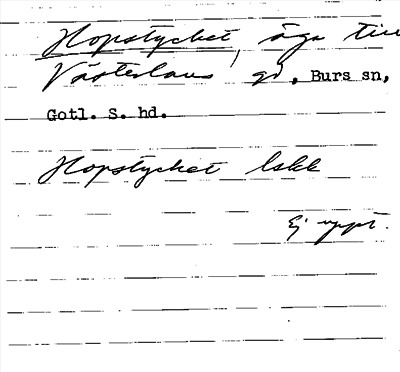 Hopstycket, äga till
Västerlaus gd, Burs sn,
Gotl. S. hd.
Hopstycket lskk
Ej uppt.